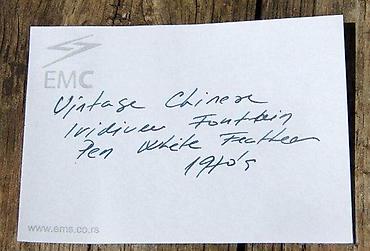 EMC
Vintage Chinese
Iridium Fountain
Pen White Feather
1970's
www.ems.co.rs